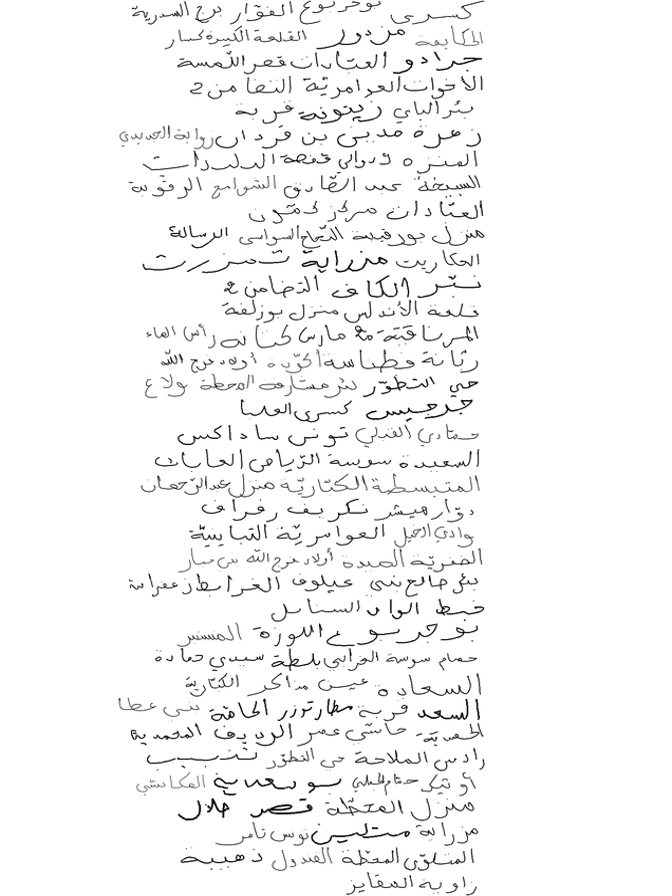 كسرى بوجربوع الفوّار برج السدرية
الحكايمة مزدور القلعة الكبيرة كسار
جرادو العتادات قصر اللمسة
الأخوات العوامريّة التضامن 2
بئر الباي زيتونة قربة
زهرة مدين بن قردان زواية الجديدي
المنزه 5 روالي قفصة الدلدات
السبيخة عبد الصّادق الشوامخ الرقوبة
العتادات مركز
منزل بورقيبة النجاح السواسي الرسالة
الحكاريت مزراية تمزرت
نبّر الكاف التضامن 2
قلعة الأندلس منزل بوزلفة
المرناقيّة 20 مارس كتانه رأس الماء
رتانة فطناسة أكودة أولاد فرج الله
حي التطوّر بئر مشارقة المحطة بولاع
جرجيس كسرى العليا
حمّادي القبلي تونس ساداكس
السعيدة سوسة الرّياض العابات
المتبسطة الكتّاريّة منزل عبد الرّحمان
دوّار هيشر نكريف رفراف
وادي الخيل العوامريّة التبابنيّة
الصخريّة العيدة أولاد فرج الله بني مبار
بئر صالح بني غيلوف الغرابطار عقرابة
خيط الواد السنابل
بوجربوع اللوزة المستير
حمام سوسة الغرابي بلطة سيدي حمادة
السعادة عين مذاكر الكتّاريّة
السعد قربة مطار توزر الحامّة بني عطا
الحمديّة حاسي عمر الرديف المحمدية
رادس الملاحة حي التطوّر تندبيب
أوتيك حمّام الجبلي بوسعدية المكانسي
منزل المحطّة قصر هلال
مزراية متلين تونس ثامر
المتلوّي المحطّة الصندول ذهيبة
زاوية المقايز